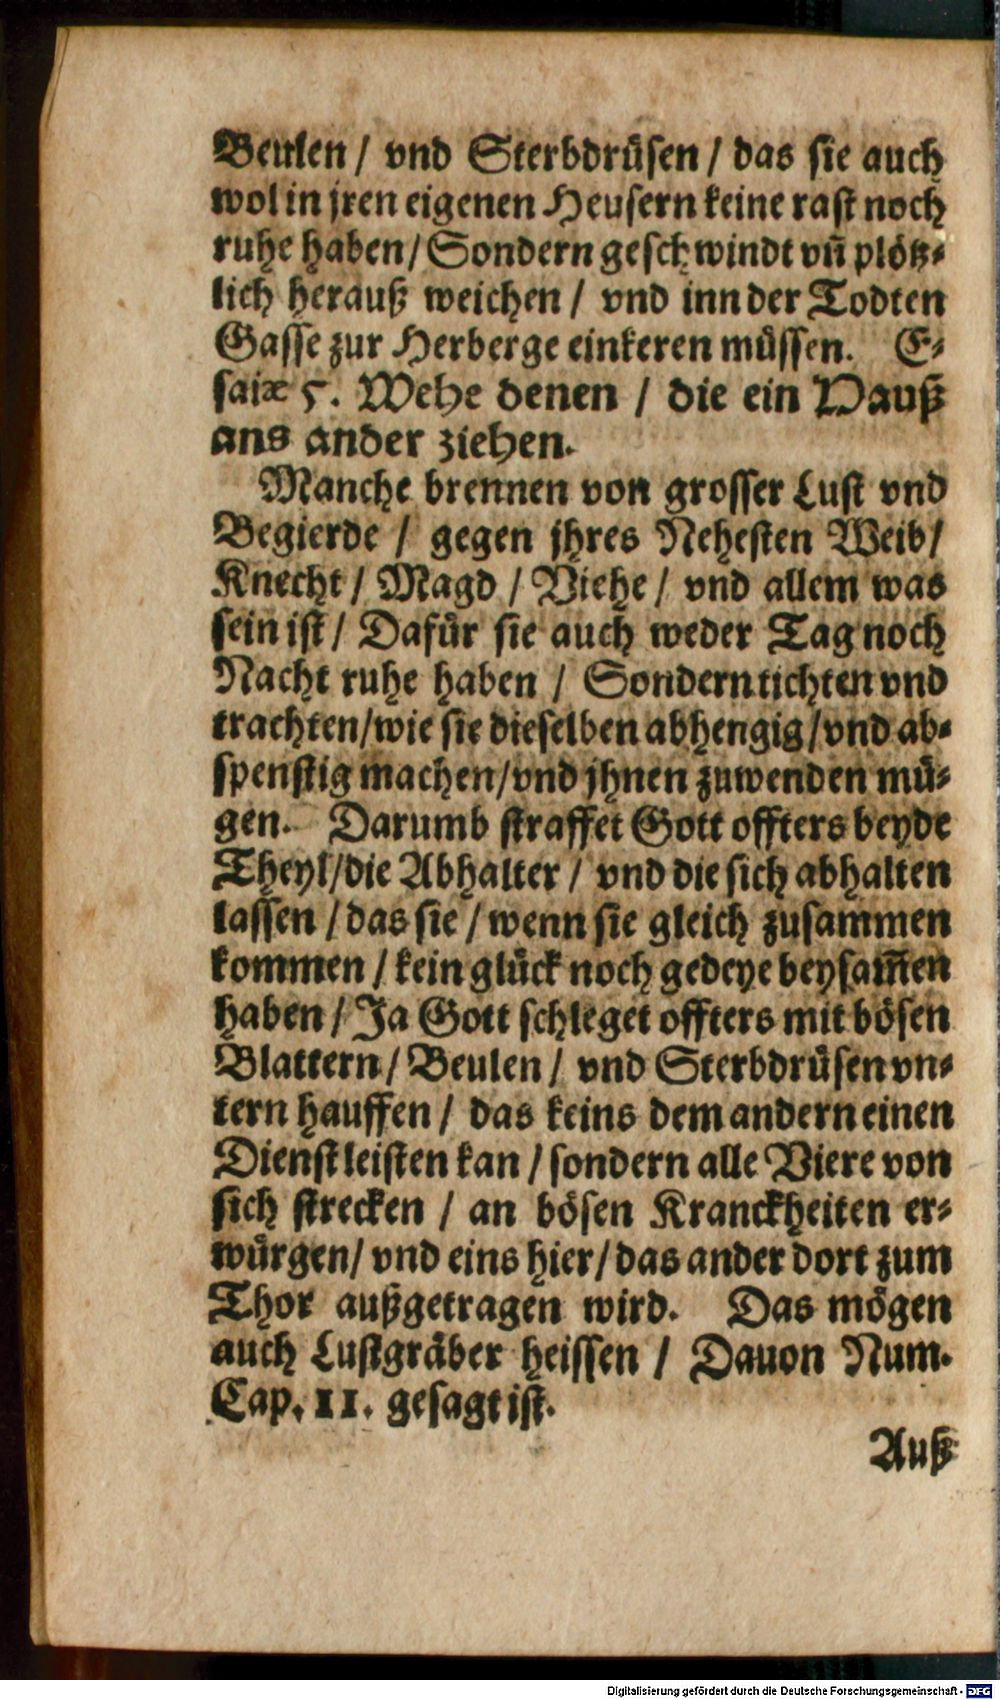 Beulen / vnd Sterbdrüsen / das sie auch
wol in jren eigenen Heusern keine rast noch
ruhe haben / Sondern geschwindt vñ plötz-
lich herauß weichen / vnd inn der Todten
Gasse zur Herberge einkeren müssen. E-
saiæ 5. Wehe denen / die ein Hauß
ans ander ziehen.
Manche brennen von grosser Lust vnd
Begierde / gegen jhres Nehesten Weib /
Knecht / Magd / Viehe / vnd allem was
sein ist / Dafür sie auch weder Tag noch
Nacht ruhe haben / Sondern tichten vnd
trachten / wie sie dieselben abhengig / vnd ab-
spenstig machen / vnd jhnen zuwenden mü-
gen. Darumb straffet Gott offters beyde
Theyl / die Abhalter / vnd die sich abhalten
lassen / das sie / wenn sie gleich zusammen
kommen / kein glück noch gedeye beysam̃en
haben / Ja Gott schleget offters mit bösen
Blattern / Beulen / vnd Sterbdrüsen vn-
tern hauffen / das keins dem andern einen
Dienst leisten kan / sondern alle Viere von
sich strecken / an bösen Kranckheiten er-
würgen / vnd eins hier / das ander dort zum
Thor außgetragen wird. Das mögen
auch Lustgräber heissen / Dauon Num.
Cap. 11. gesagt ist.
Auß
Digitalisierung gefördert durch die Deutsche Forschungsgemeinschaft - DFG